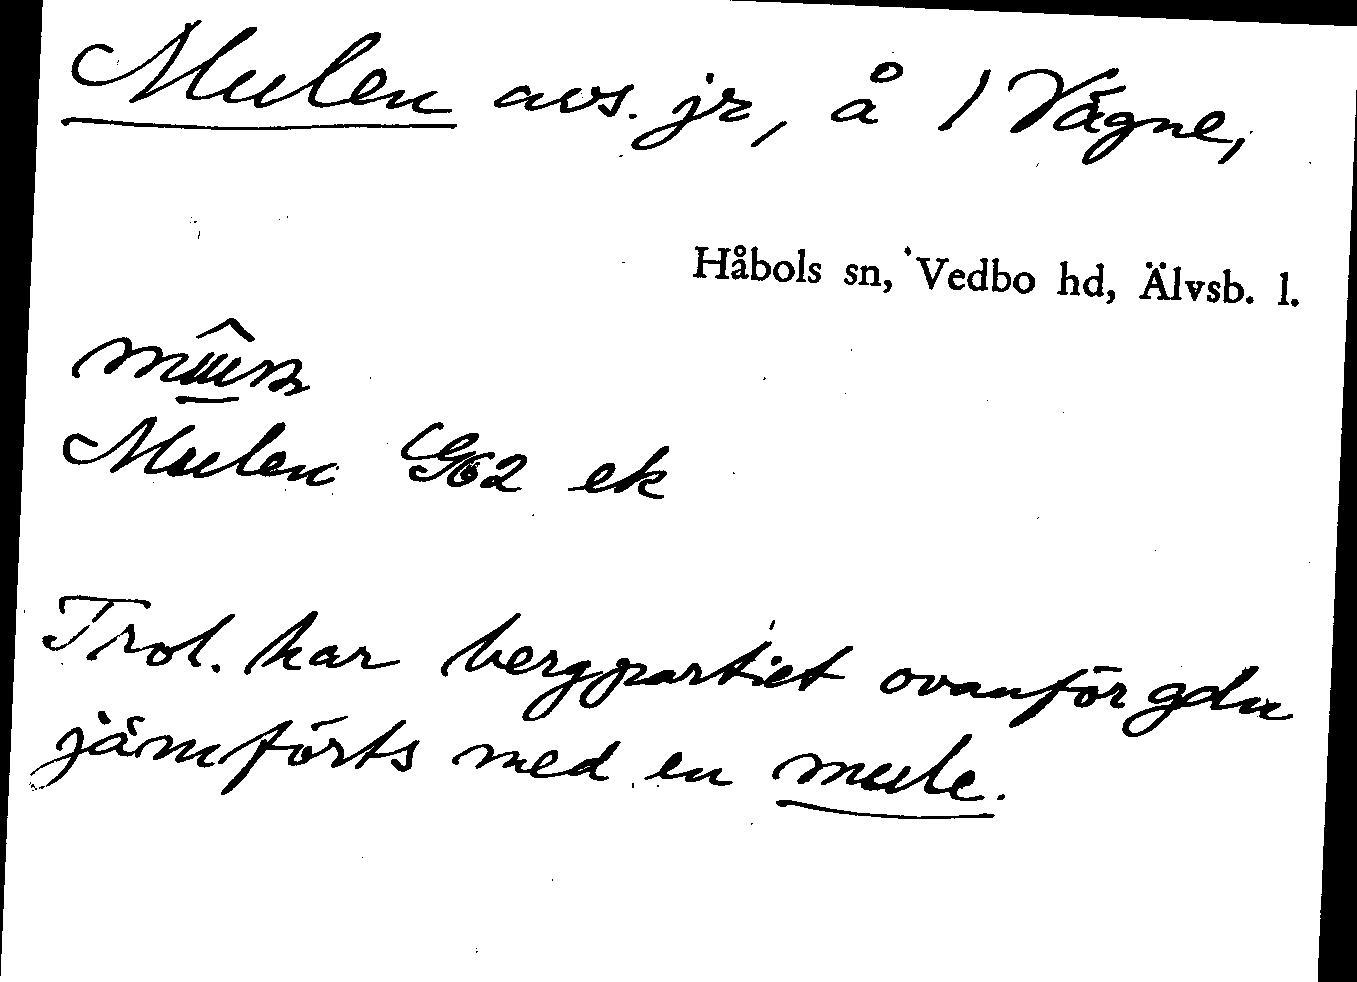 Mulen avs. jr, å 1 Vägne,
Håbols sn, Vedbo hd, Älvsb. l.
Mulen G62 ek
Trol. har bergpartiet ovanför gdn
jämförts med en mule.